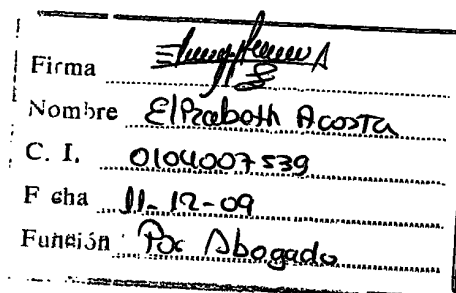 Firma
Nombre Elizabeth Acosta
C. I. 0104007539
F cha 11-12-09
Función Por Abogado